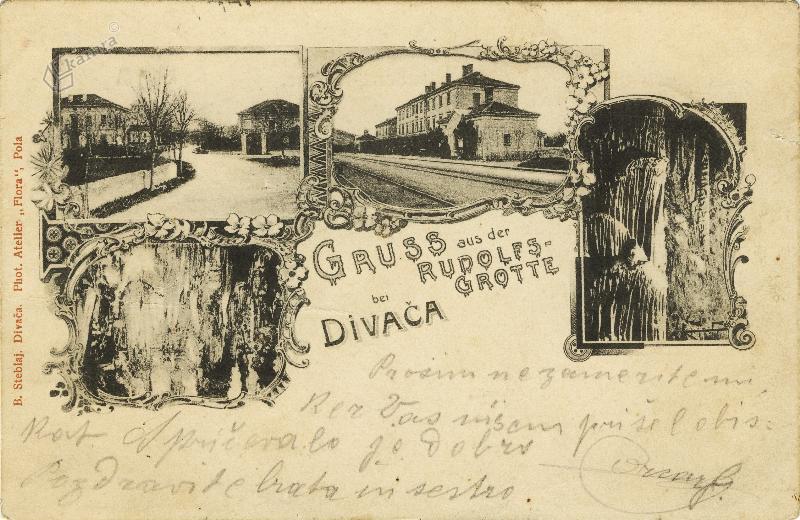 kamra
B. Steblaj, Divača. Phot. Atelier „Flora“, Pola
GRUSS aus der
RUDOLFS-
GROTTE
bei
DIVAČA
Prosim ne zamerite mi,
Ker Vas nisem prišel obis-
kat je dobro
Pozdravite brata in sestro